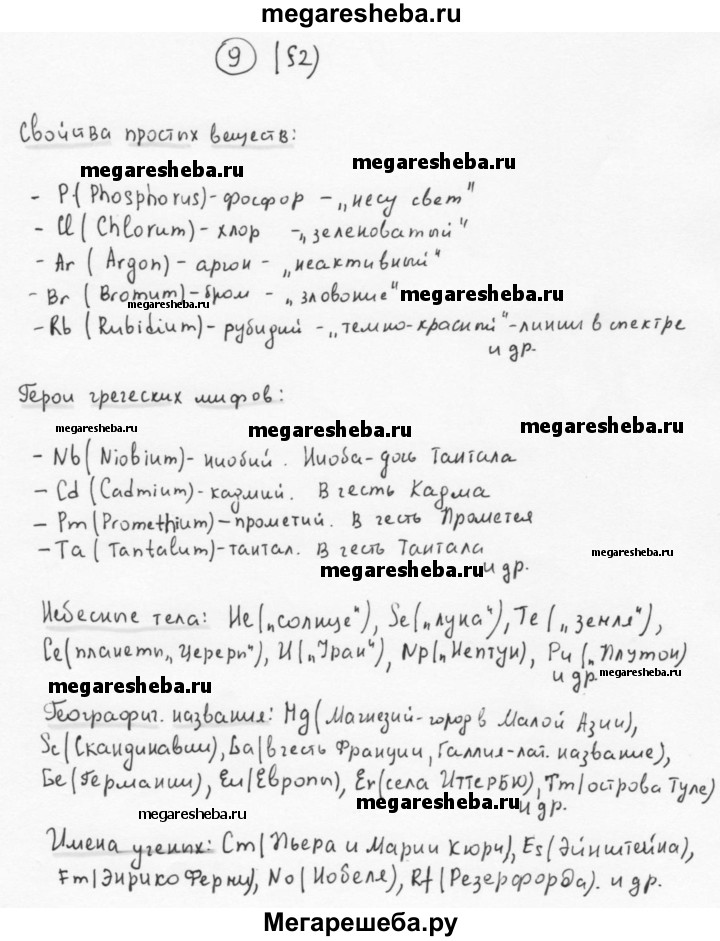 megaresheba.ru
9 (§2)
Свойства простых веществ:
megaresheba.ru megaresheba.ru
- P (Phosphorus) - фосфор - „несу свет"
- Cl (Chlorum) - хлор - „зеленоватый"
- Ar (Argon) - аргон - „неактивный"
- Br (Bromum) - бром - „зловоние" megaresheba.ru
megaresheba.ru
- Rb (Rubidium) - рубидий - „темно-красный" - линии в спектре
и др.
Герои греческих мифов:
megaresheba.ru megaresheba.ru megaresheba.ru
- Nb (Niobium) - ниобий. Ниоба - дочь Тантала
- Cd (Cadmium) - кадмий. В честь Кадма
- Pm (Promethium) - прометий. В честь Прометея
- Ta (Tantalum) - тантал. В честь Тантала
megaresheba.ru
megaresheba.ru и др.
Небесные тела: He („солнце"), Se („луна"), Te („земля"),
Ce (планеты „Цереры"), U („Уран"), Np („Нептун), Pu („Плутон)
и др. megaresheba.ru
megaresheba.ru
Географич. названия: Mg (Магнезий - город в Малой Азии),
Sc (Скандинавии), Ga (в честь Франции, Галлия - лат. название),
Ge (Германии), Eu (Европы), Er (села Иттербю), Tm (острова Туле)
megaresheba.ru и др.
megaresheba.ru
Имена ученых: Cm (Пьера и Марии Кюри), Es (Эйнштейна),
Fm (Энрико Ферми), No (Нобеля), Rf (Резерфорда). и др.
Мегарешеба.ру